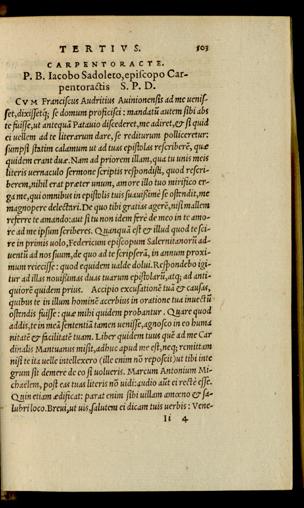 TERTIVS. 503
CARPENTORACTE.
P. B. Iacobo Sadoleto, episcopo Car-
pentoractis S. P. D.
CVM Franciscus Audritius Auinionensis ad me uenis-
set, dixissetq́; se domum proficisci: mandatũ autem sibi abs
te fuisse, ut antequã Patauio discederet, me adiret, & si quid
ei uellem ad te literarum dare, se rediturum polliceretur:
sumpsi statim calamum ut ad tuas epistolas rescriberẽ, quæ
quidem erant duæ. Nam ad priorem illam, qua tu unis meis
literis uernaculo sermone scriptis respondisti, quod rescri-
berem, nihil erat præter unum, amore illo tuo mirifico er-
ga me, qui omnibus in epistolis tuis suauißimè se ostendit, me
magnopere delectari. De quo tibi gratias agerẽ, nisi mallem
referre te amando: aut si tu non idem ferè de meo in te amo-
re ad me ipsum scriberes. Quanquã est & illud quod te sci-
re in primis uolo, Federicum episcopum Salernitanorũ ad-
uentũ ad nos suum, de quo ad te scripserã, in annum proxi-
mum reiecisse: quod equidem ualde dolui. Respondebo igi-
tur ad illas nouißimas duas tuarum epistolarũ, atq; ad anti-
quiorẽ quidem prius. Accipio excusationẽ tuã & causas,
quibus te in illum hominẽ acerbius in oratione tua inuectũ
ostẽdis fuisse: quæ mihi quidem probantur. Quare quod
addis, te in meã sententiã tamen uenisse, agnosco in eo huma
nitatẽ & facilitatẽ tuam. Liber quidem tuus quẽ ad me Car
dinalis Mantuanus misit, adhuc apud me est, neq; remittam
nisi te ita uelle intellexero (ille enim nõ reposcit) ut tibi inte
grum sit demere de eo si uolueris. Marcum Antonium Mi-
chaelem, post eas tuas literas nõ uidi: audio aũt ei rectè esse.
Quin etiam ædificat: parat enim sibi uillam amœno & sa-
lubri loco. Breui, ut uis, salutem ei dicam tuis uerbis: Vene-
Ii 4